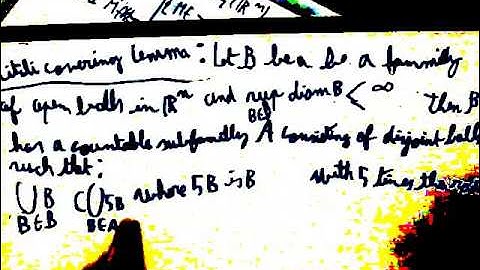 covering lemma: Let B be a be a fammily
of open balls in ℝⁿ and sup diam B < ∞ then B
B∈B
has a countable subfamilly A consisting of disjoint balls
such that:
⋃B ⊂ ⋃5B where 5B is B with 5 times the
B∈B B∈A